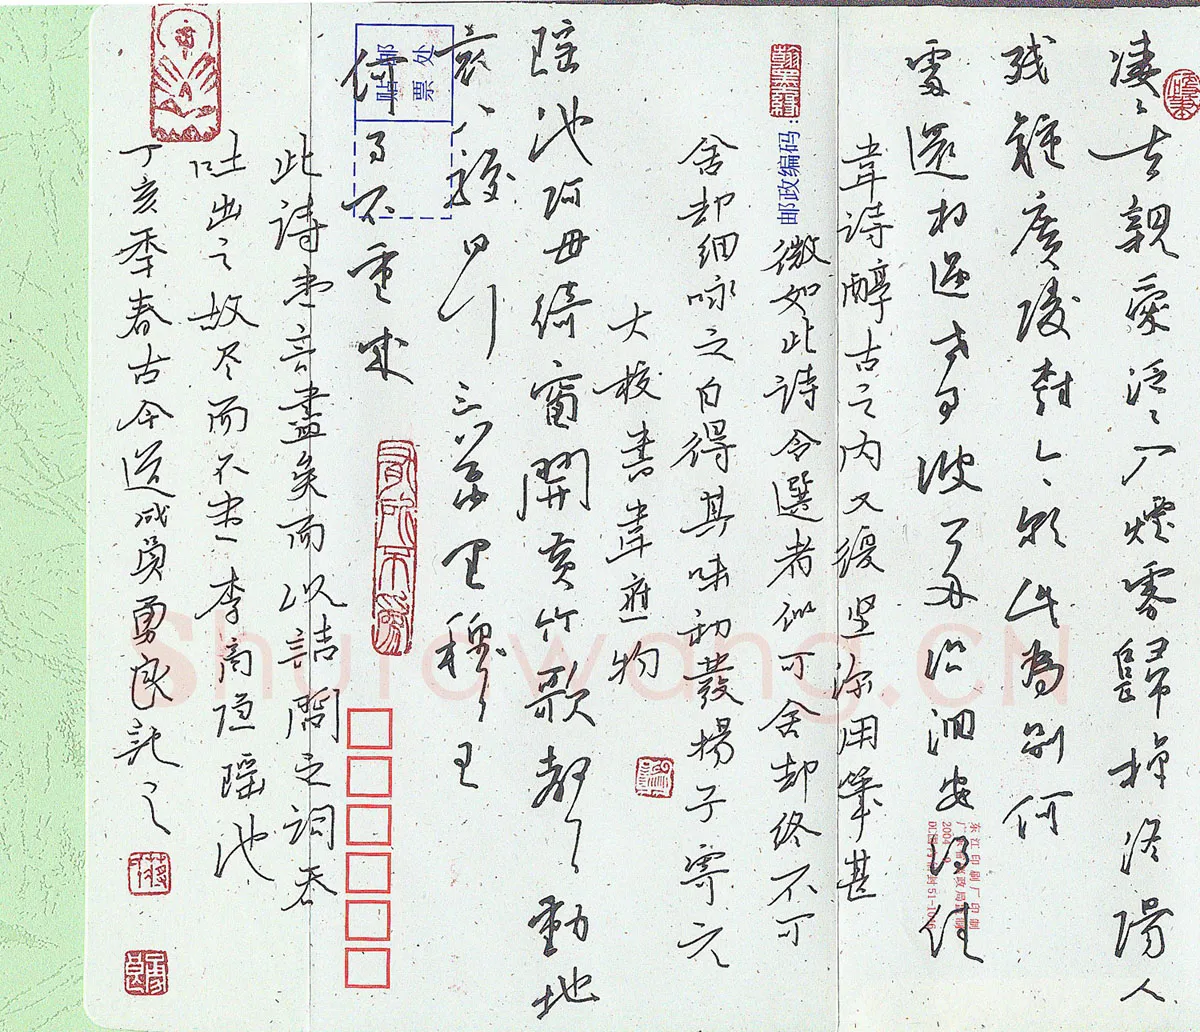 凄凄去親愛泛泛入煙霧歸棹洛陽人
残鐘廣陵樹今朝此為别何
處還相遇世事波上舟沿洄安得住
韋詩醇古之内又復坚深用筆甚
翰墨緣
邮政编码:
微如此詩令選者似可舍却終不可
舍却细咏之自得其味初發揚子寄元
大校書韋應物
瑶池阿母綺窗開黄竹歌聲動地
哀八駿日行三萬里穆王
贴邮票处
何事不重来
有所不為
此詩意言盡矣而以詰問之詞吞
吐出之故尽而不盡李商隐瑶池
丁亥季春古今道
勇良記之
东江印刷厂印制
2004
Shufawang.CN